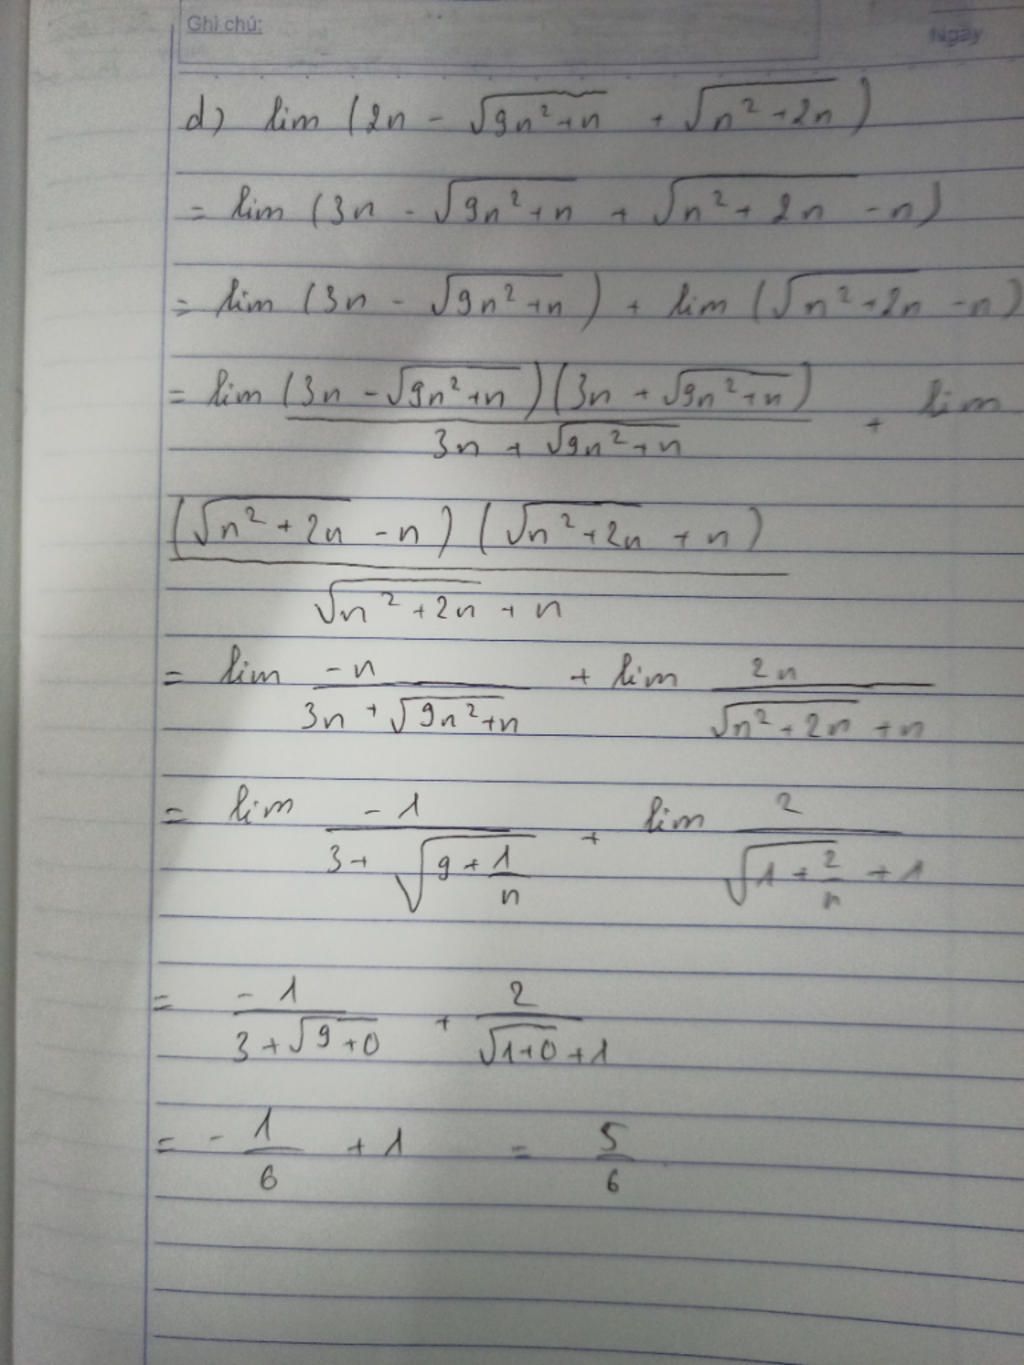 Ghi chú:
Ngày
d) lim (2n - √(9n²+n) + √(n²+2n))
= lim (3n - √(9n²+n) + √(n²+2n) - n)
= lim (3n - √(9n²+n)) + lim (√(n²+2n) - n)
= lim (3n - √(9n²+n))(3n + √(9n²+n)) / (3n + √(9n²+n)) + lim
(√(n²+2n) - n)(√(n²+2n) + n) / (√(n²+2n) + n)
= lim -n / (3n + √(9n²+n)) + lim 2n / (√(n²+2n) + n)
= lim -1 / (3 + √(9 + 1/n)) + lim 2 / (√(1 + 2/n) + 1)
= -1 / (3 + √(9+0)) + 2 / (√(1+0) + 1)
= - 1/6 + 1 = 5/6